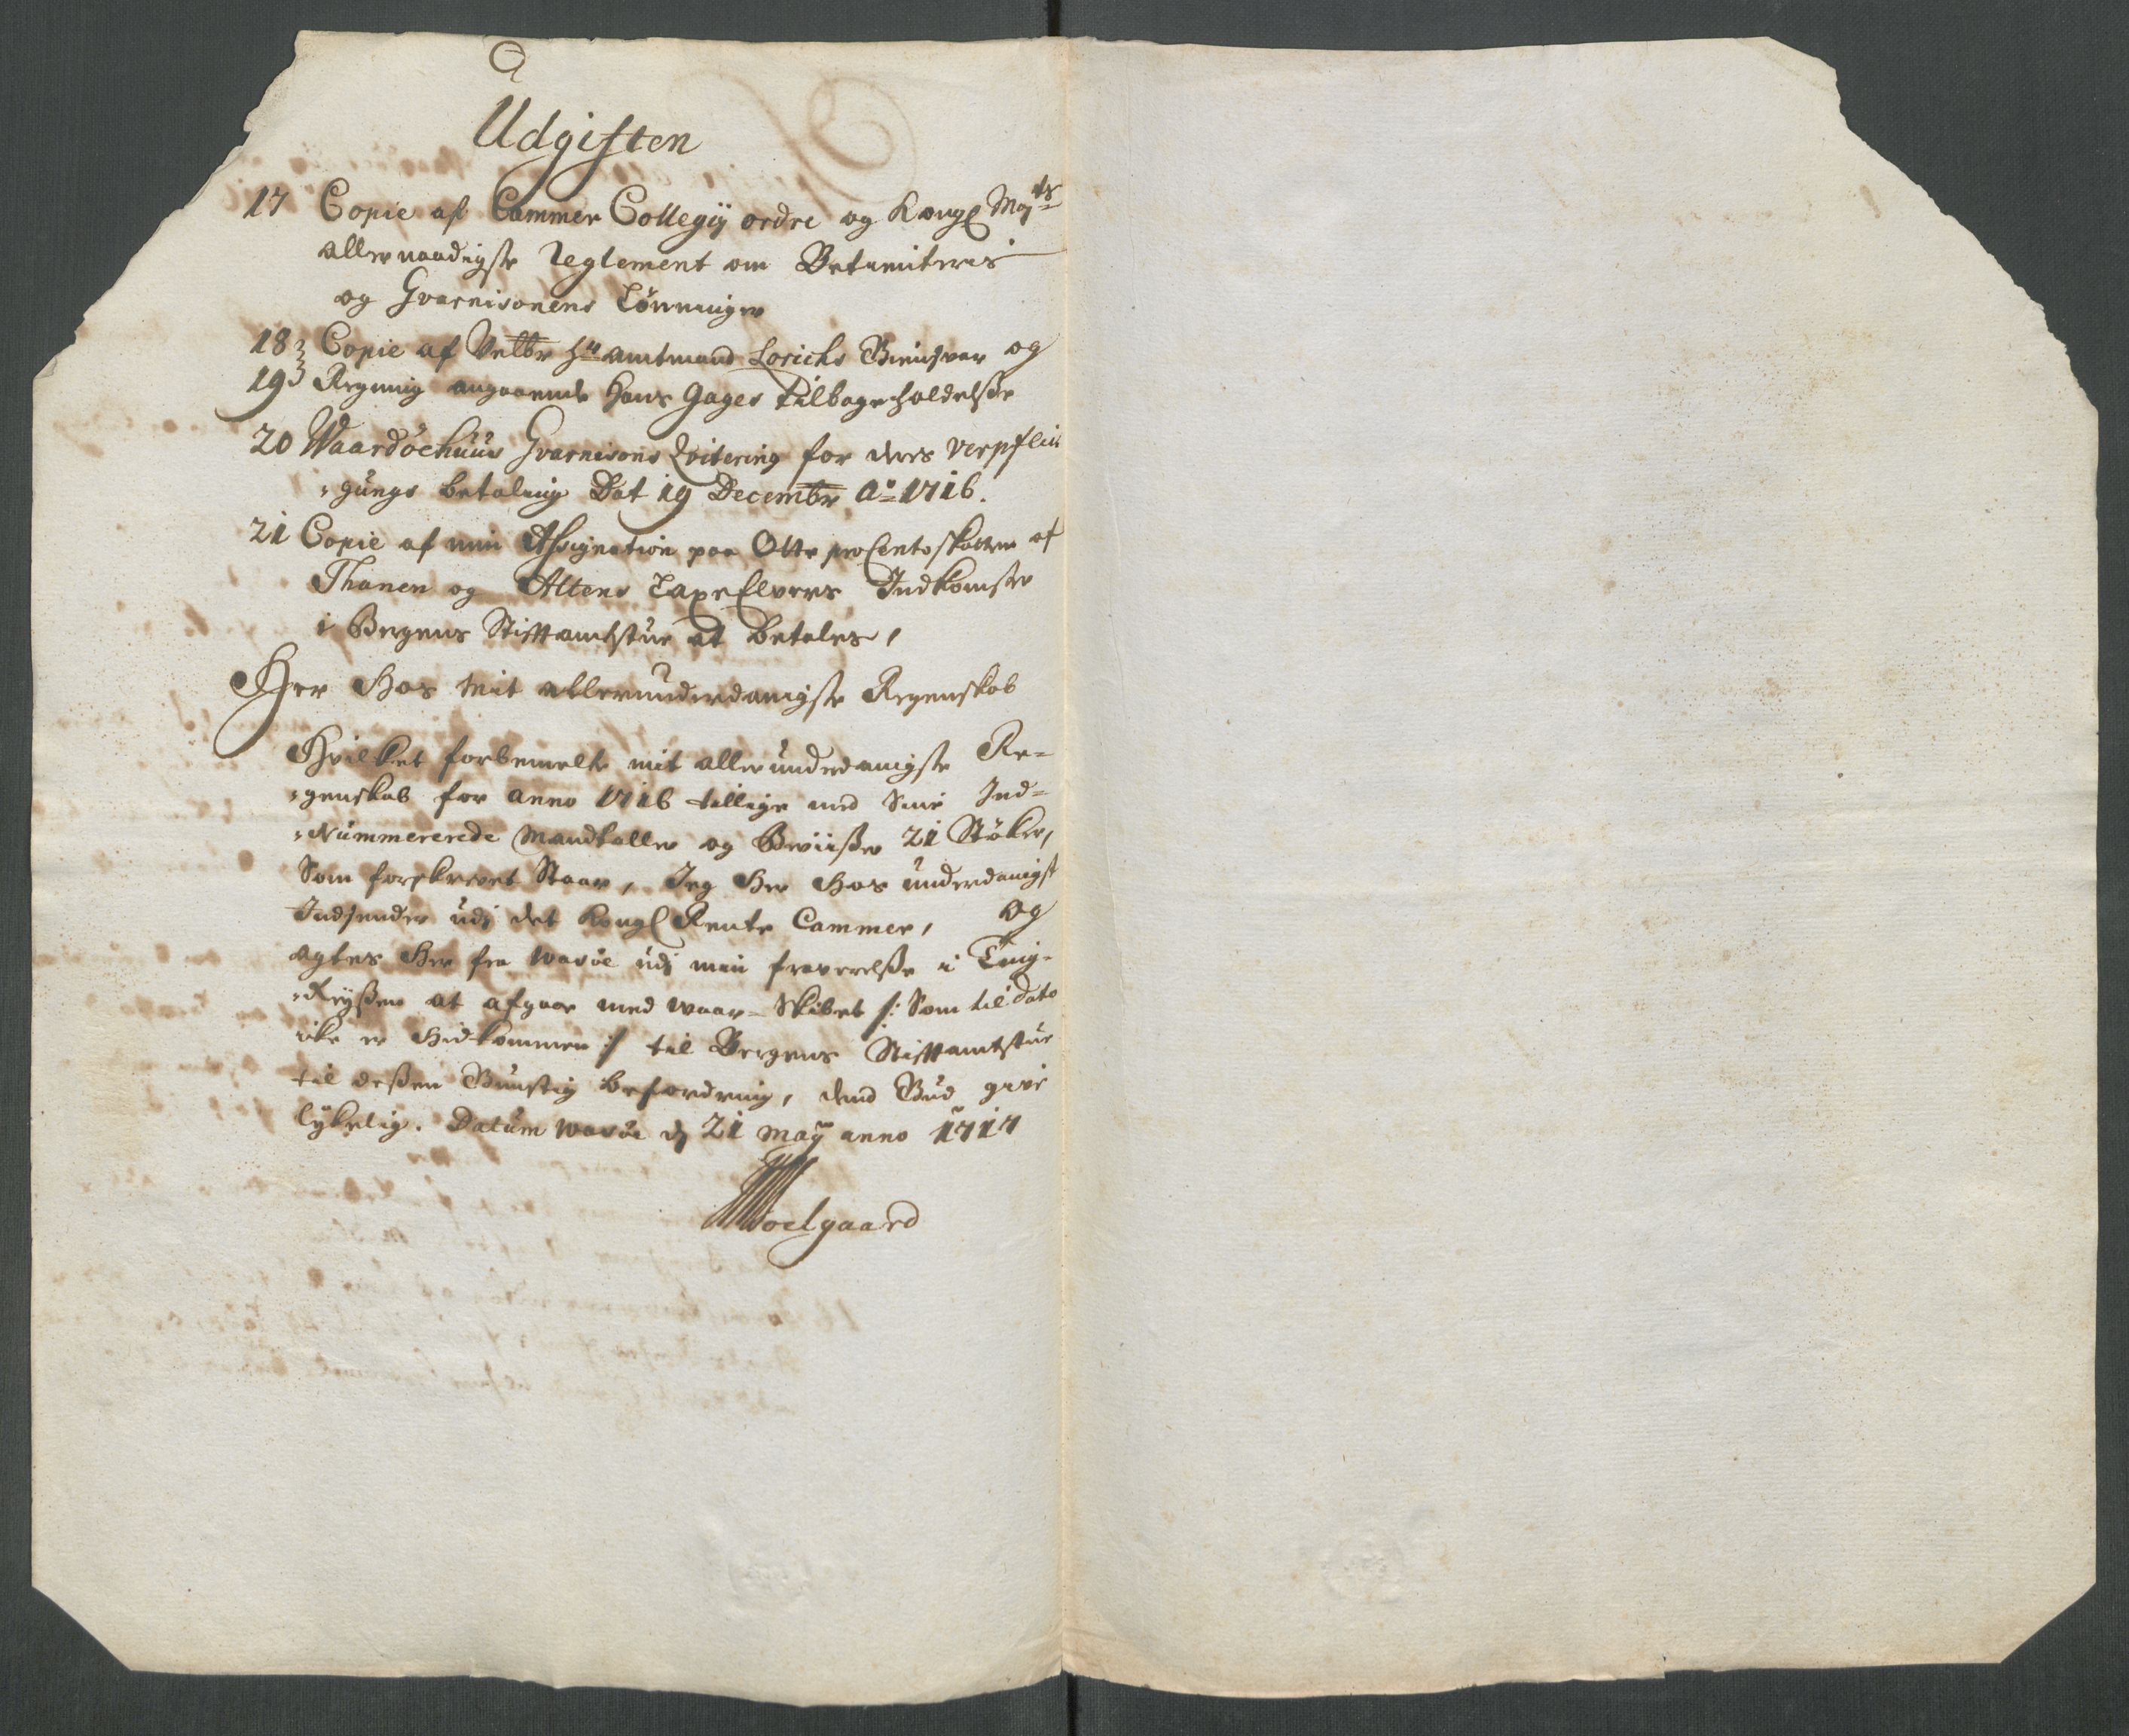 Udgiften
17 Copie af Cammer Collegÿ ordre og Kongl Mayts
allernaadigste Reglement om Betienternis
og Gvarnisonens Lönninger
18 Copie af Velbr Hr amtmand Lorichs Giensvar og
19 Regning angaaende Hans Gages tilbageholdelsse
20 Waardöehuus Gvarnisons Qvitering for deres verpflei
gungs betaling Dat 19 Decembr Ao 1716.
21 Copie af min Assignation paa Otte pro Cento skatten af
Thanen og Altens Laxe Elvers Indkomster
i Bergens Stifftamtstue at betales,
Her Hos mit allerunderdanigste Regenskab
Hvilket forbemelte mit allerunderdanigste Re=
genskab for anno 1716 tillige med Sine Ind=
Nummererede Mandtaller og Beviisser 21 Stöker,
Som forskrevet Staar, Jeg Her Hos underdanigst
Indsender udj det Kongl Rente Cammer, og
agtes Her fra wasöe udj min fraverelsse i Ting-
Reÿssen at afgaae med waar=Skibet /: Som til dato
icke er Hidkommen :/ til Bergens Stifftamtstue
til dessen Gunstig befordring, dend Gud give
lÿkelig. Datum wasöe dj 21 Maÿ anno 1717
Soelgaard